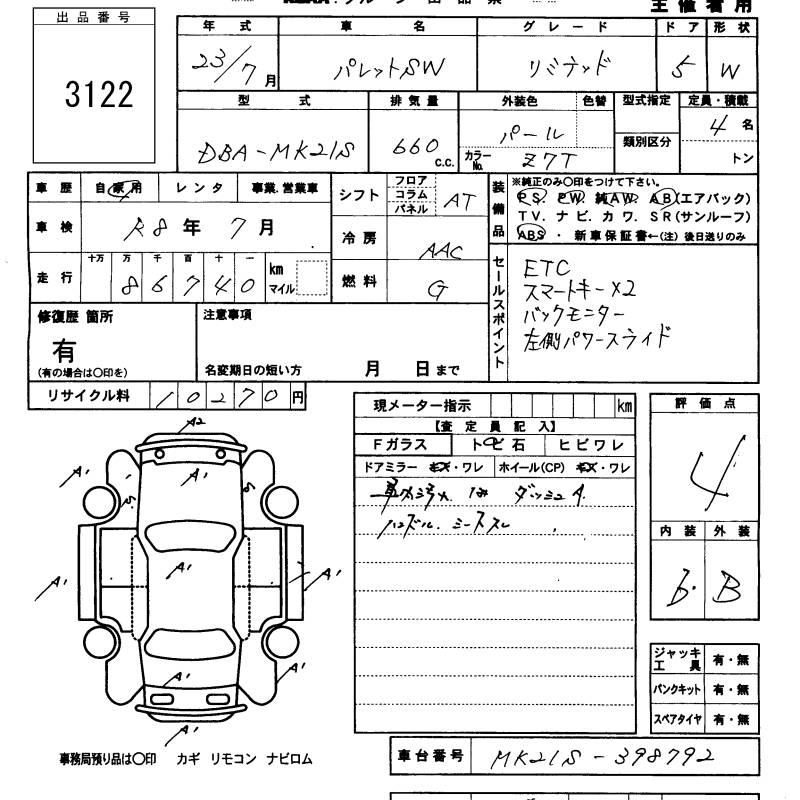 主催者用
出品番号
3122
年式 車名 グレード ドア 形状
23/7月 パレットSW リミテッド 5 W
型式 排気量 外装色 色替 型式指定 定員・積載
DBA-MK21S 660 c.c. パール 類別区分 4名
カラーNo. Z7T トン
車歴 自家用 レンタ 事業.営業車
車検 R8年7月
走行 十万 万 千 百 十 一
86740 km マイル
シフト フロア コラム パネル AT
冷房 AAC
燃料 G
装備品 ※純正のみ〇印をつけて下さい。
PS. PW. 純AW. AB(エアバック)
TV. ナビ. カワ. SR(サンルーフ)
ABS ・ 新車保証書←(注)後日送りのみ
セールスポイント
ETC
スマートキー×2
バックモニター
左側パワースライド
修復歴 箇所
有
(有の場合は〇印を)
注意事項
名変期日の短い方 月 日まで
リサイクル料 10270円
現メーター指示 km
【査定員記入】
Fガラス トビ石 ヒビワレ
ドアミラー キズ・ワレ ホイール(CP) キズ・ワレ
ダッシュA
ハンドル.
評価点
4
内装 外装
b. B
ジャッキ工具 有・無
パンクキット 有・無
スペアタイヤ 有・無
A2
A1 A1
A1 A1 A1
A1 A1
A1
事務局預り品は〇印 カギ リモコン ナビロム
車台番号 MK21S-398792